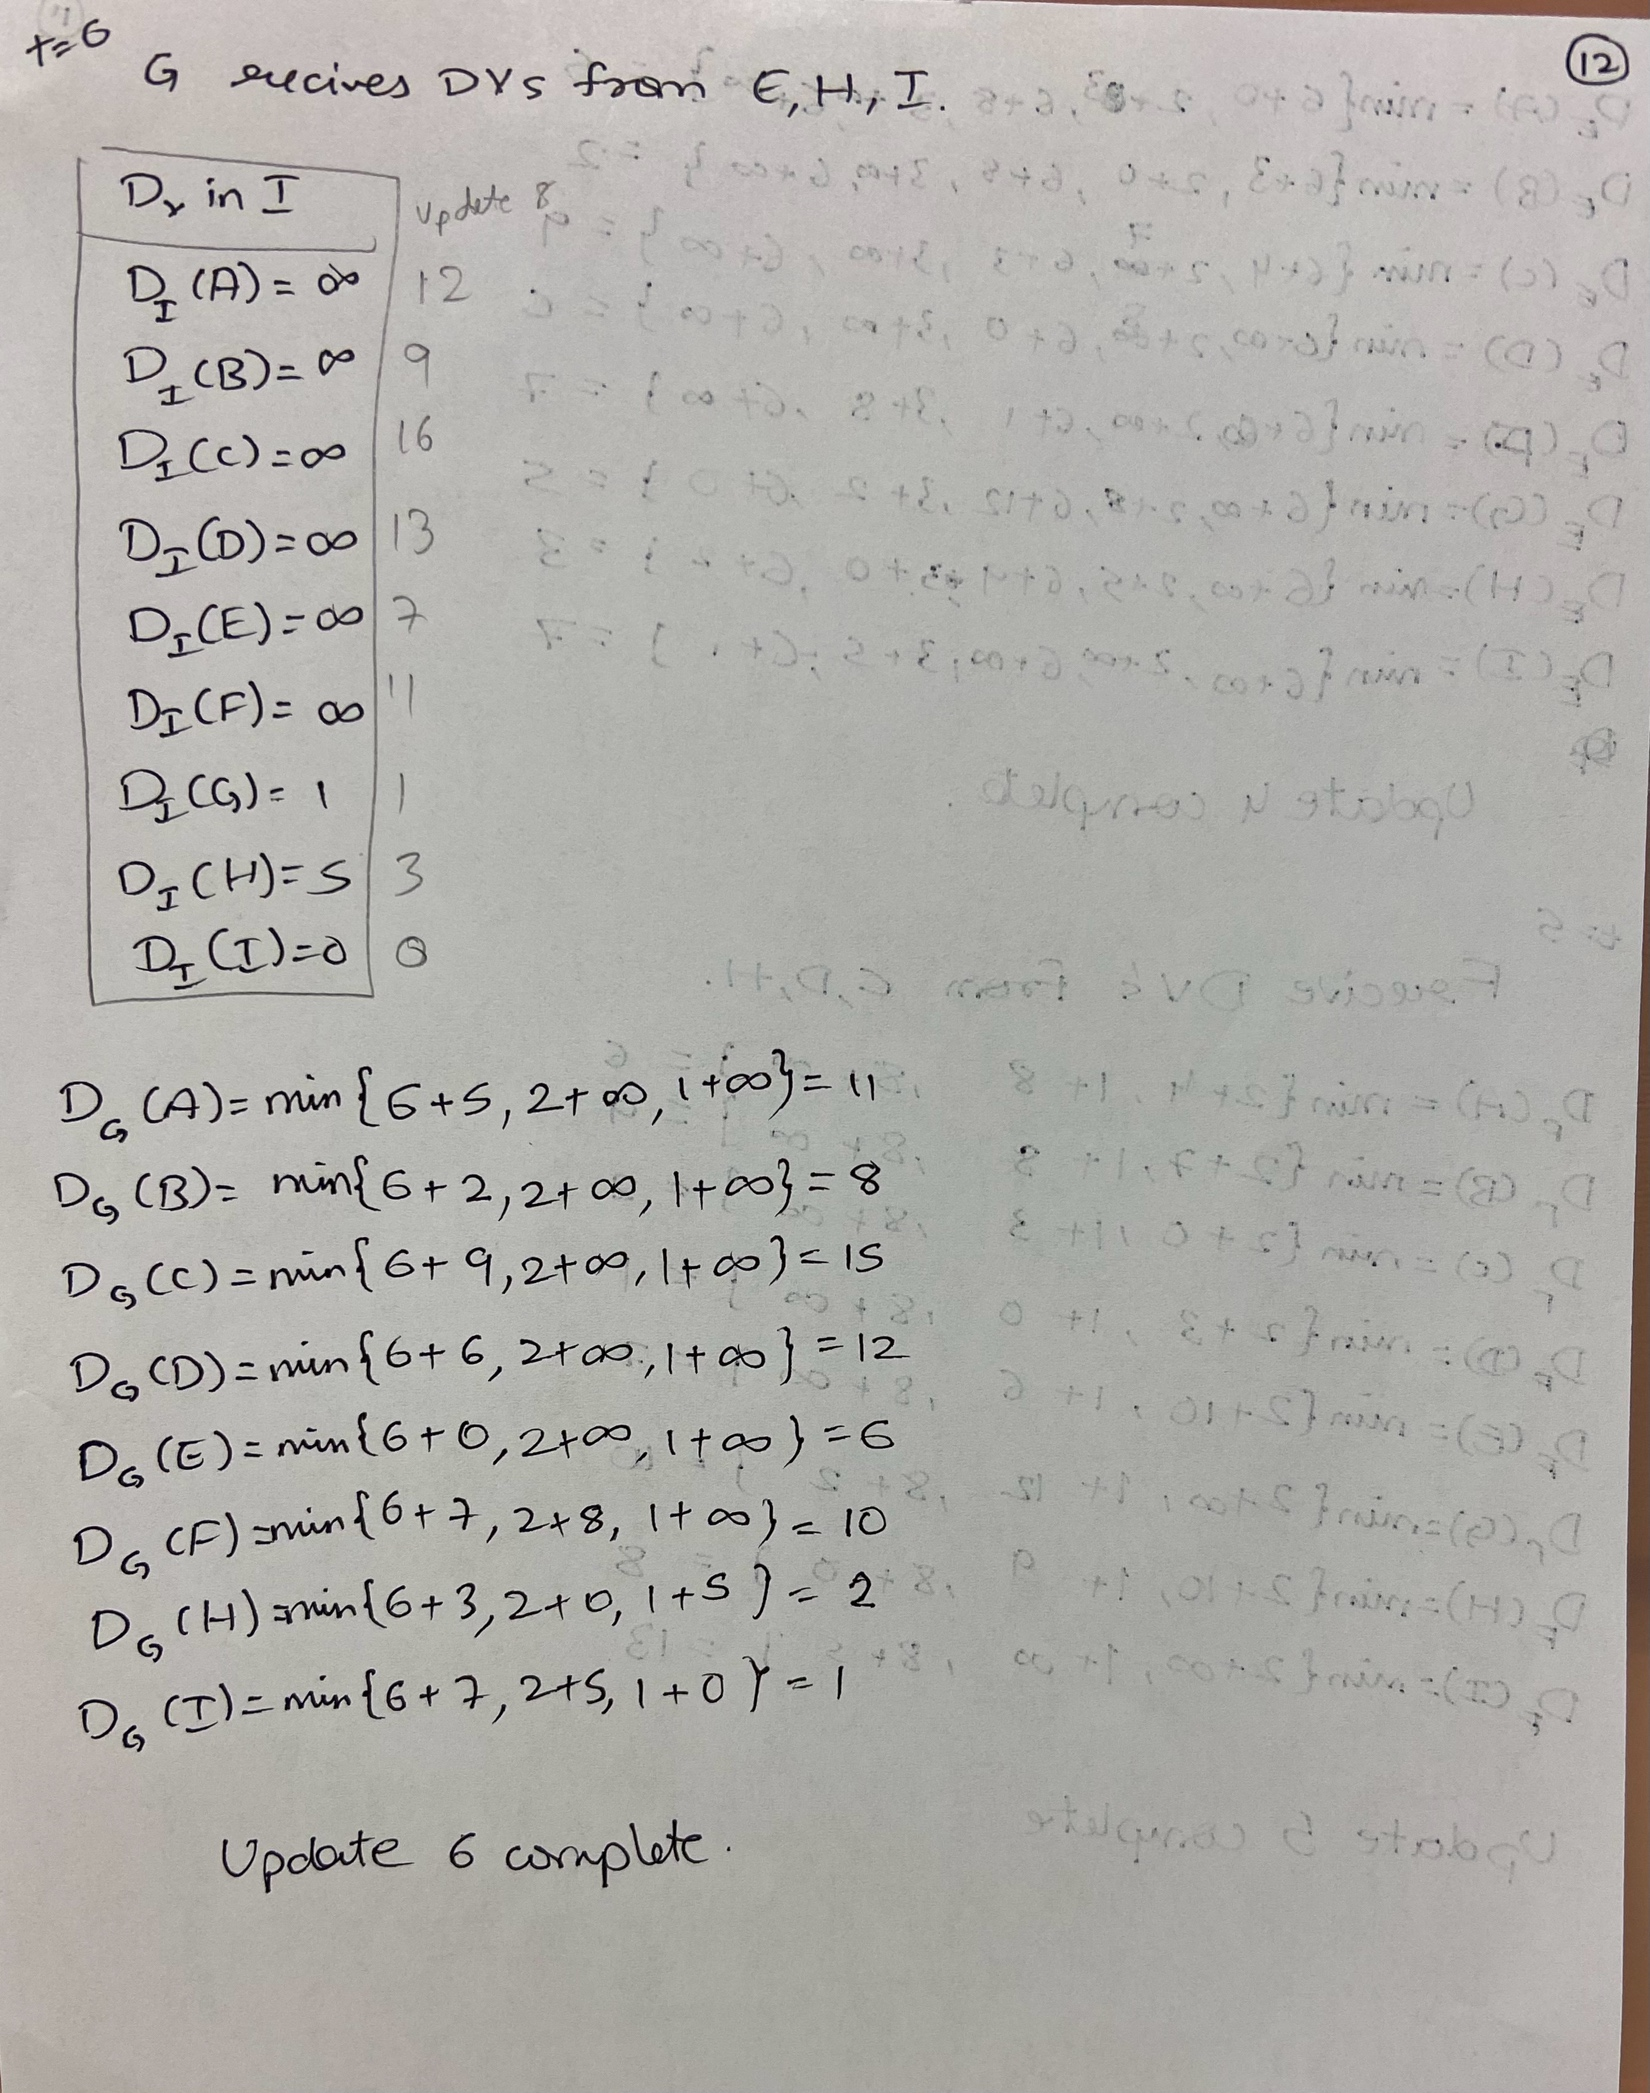 t=6
12
G recives DVs from E, H, I.
Dv in I
update 8
D_I(A) = ∞ 12
D_I(B) = ∞ 9
D_I(C) = ∞ 16
D_I(D) = ∞ 13
D_I(E) = ∞ 7
D_I(F) = ∞ 11
D_I(G) = 1 1
D_I(H) = 5 3
D_I(I) = 0 0
D_G(A) = min{6+5, 2+∞, 1+∞} = 11
D_G(B) = min{6+2, 2+∞, 1+∞} = 8
D_G(C) = min{6+9, 2+∞, 1+∞} = 15
D_G(D) = min{6+6, 2+∞, 1+∞} = 12
D_G(E) = min{6+0, 2+∞, 1+∞} = 6
D_G(F) = min{6+7, 2+8, 1+∞} = 10
D_G(H) = min{6+3, 2+0, 1+5} = 2
D_G(I) = min{6+7, 2+5, 1+0} = 1
Update 6 complete.